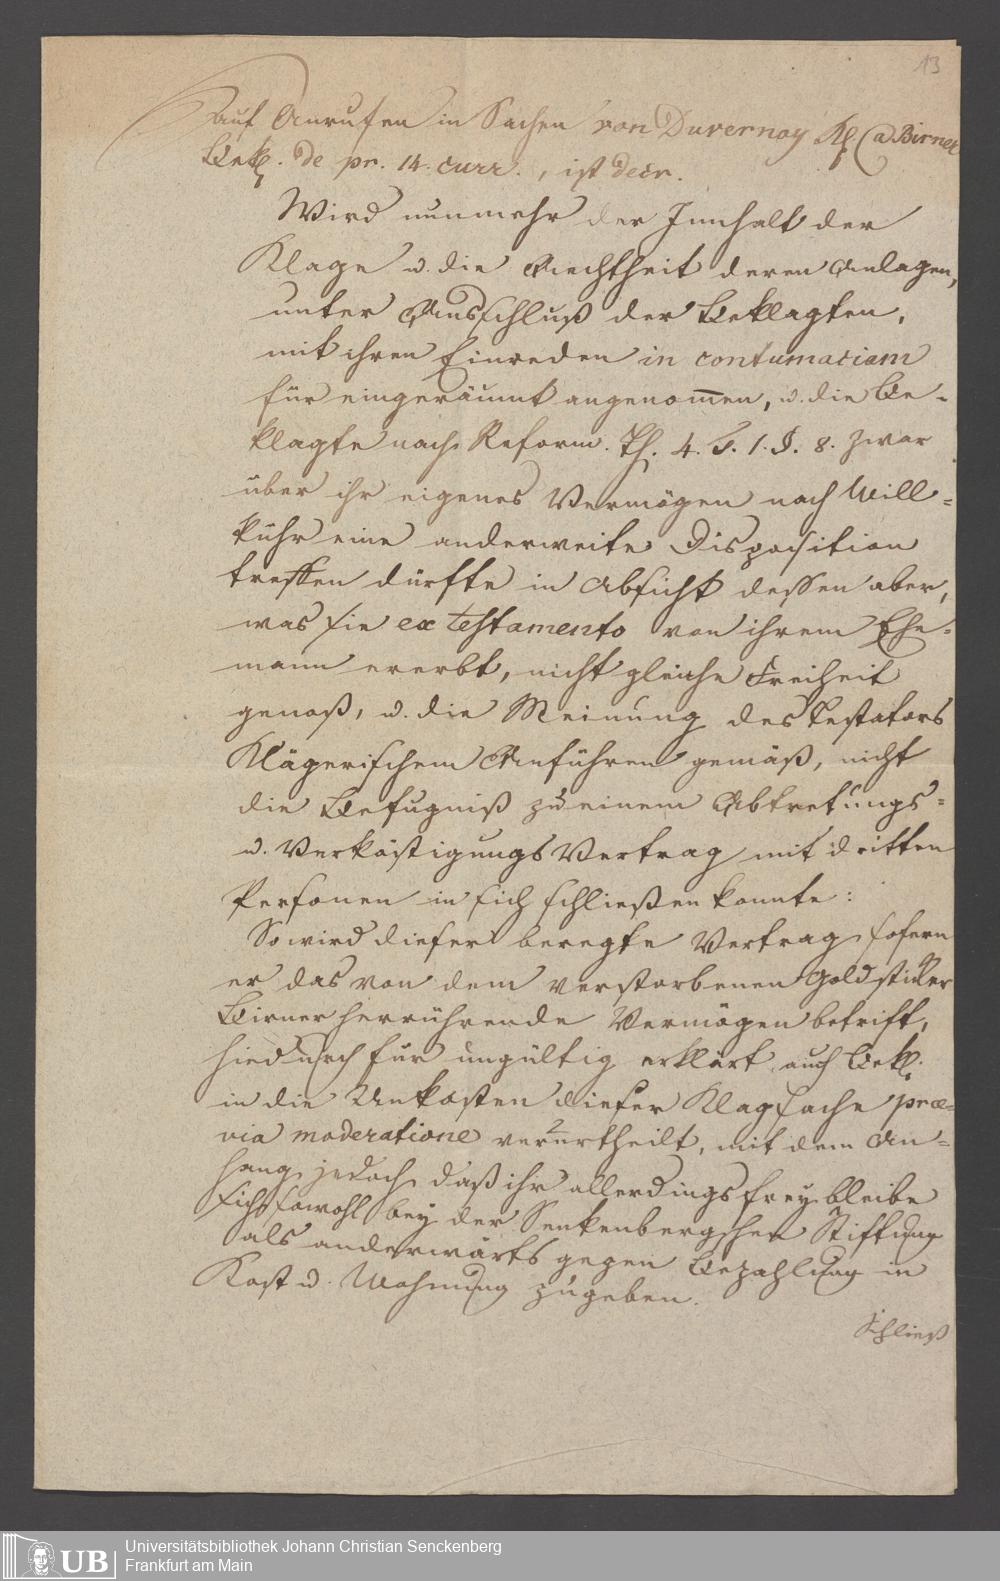 13
Auf Anrufen in Sachen von Duvernoy Kl. Ca Birner
Bekl. de pr. 14. curr., ist decr.
Wird nunmehr der Innhalt der
Klage u. die Aechtheit deren Anlagen,
unter Ausschluß der Beklagten,
mit ihren Einreden in contumaciam
für eingeräumt angenom̅en, u. die Be-
klagte nach Reform. Th. 4. T. 1. §. 8. zwar
über ihr eigenes Vermögen nach Will-
kühr eine anderweite Disposition
treffen dürfte in Absicht dessen aber,
was sie ex testamento von ihrem Ehe-
mann ererbt, nicht gleiche Freiheit
genoß, u. die Meinung des Testators
Klägerischem Anführen gemäß, nicht
die Befugniß zu einem Abtretungs-
u. Verköstigungs Vertrag mit dritten
Personen in sich schließen konnte:
So wird dieser beregte Vertrag, sofern
er das von dem verstorbenen Goldsticker
Birner herrührende Vermögen betrift,
hiedurch für ungültig erklärt, auch Bekl.
in die Unkosten dieser Klagsache præ-
via moderatione verurtheilt, mit dem An-
hang jedoch, daß ihr allerdings frey bleibe
sich sowohl bey der Senkenbergschen Stiftung
als anderwärts gegen Bezahlung in
Kost u. Wohnung zu geben.
Schließ
UB
Universitätsbibliothek Johann Christian Senckenberg
Frankfurt am Main